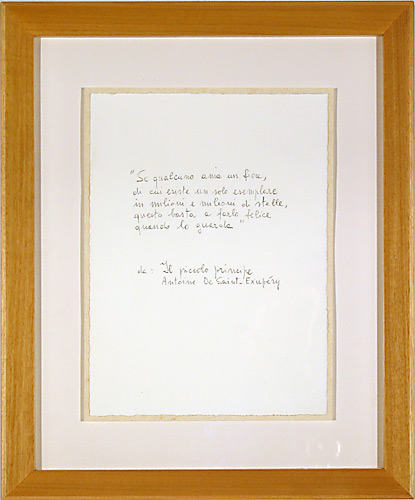 "Se qualcuno ama un fiore,
di cui esiste un solo esemplare
in milioni e milioni di stelle,
questo basta a farlo felice
quando lo guarda"
da: Il piccolo principe
Antoine De Saint-Exupéry